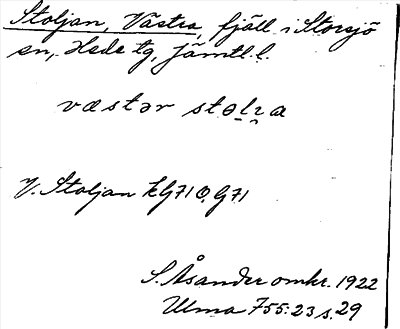 Stoljan, Västra, fjäll i Storsjö
sn, Hede tg, Jämtl. l.
væstər stolɪa
V. Stoljan kG71Ö, G71
S. Åsander omkr. 1922
Ulma 755:23 s. 29